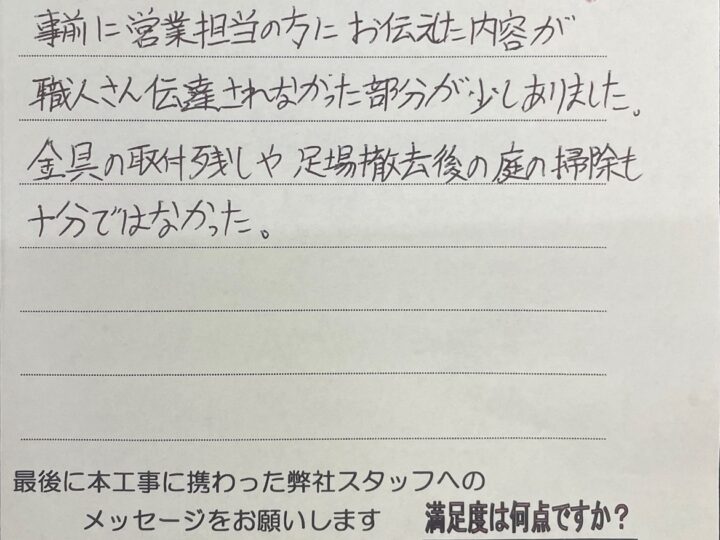 事前に営業担当の方にお伝えた内容が
職人さん伝達されなかった部分が少しありました。
金具の取付残しや足場撤去後の庭の掃除も
十分ではなかった。
最後に本工事に携わった弊社スタッフへの
メッセージをお願いします
満足度は何点ですか？